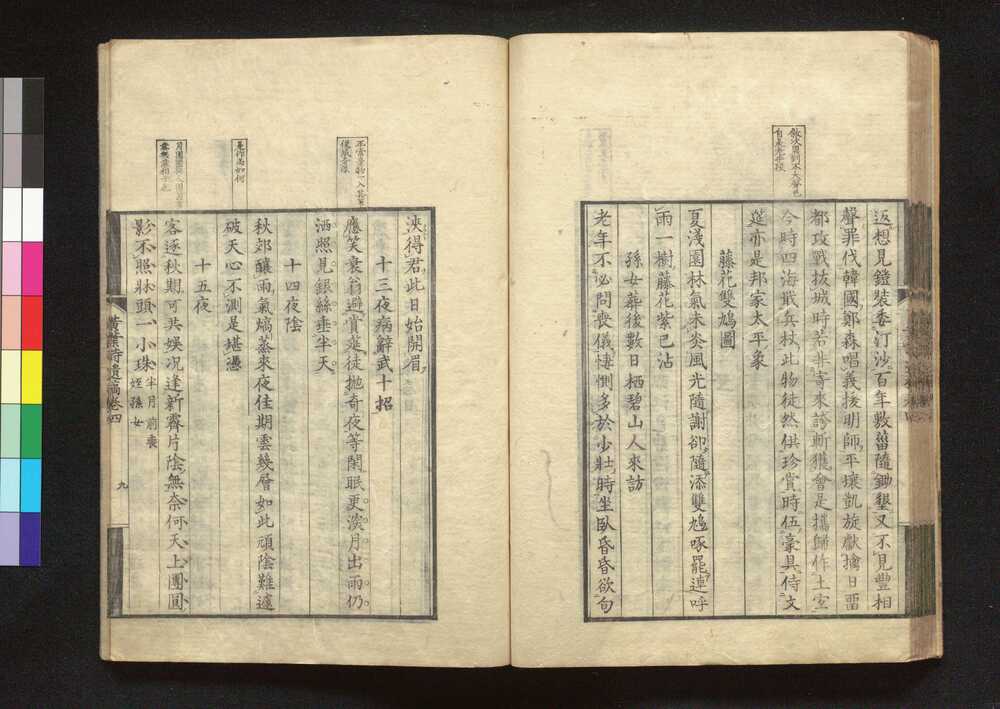 敘次周到不大聲色
自是老手段
返想見鐙裝委汀沙百年數甾隨鋤墾又不見豐相
聲罪伐韓國鄭森唱義援明師平壤凱旋獻擒日畱
都攻戰拔城時若井寄來誇斬獲會是攜歸作土宜
今時四海戢兵杖此物徒然供珍賞時伍豪具侍文
筵亦是邦家太平象
藤花雙鳩圖
夏淺園林氣未炎風光隨謝卻隨添雙鳩啄罷連呼
雨一樹藤花紫已沾
孫女葬後數日栖碧山人來訪
老年不必問喪儀悽惻多於少壯時坐臥昏昏欲句
浹得君此日始開眉
十三夜病辭武十招
應笑衰翁避賞筵徒拋奇夜等閑眠更深月出雨仍
洒照見銀絲垂半天
十四夜陰
秋郊釀雨氣熇蒸來夜佳期雲幾層如此頑陰難遽
破天心不測是堪憑
十五夜
客逐秋期可共娛況逢新霽片陰無奈何天上團圓
影不照牀頭一小珠
半月前喪
姪孫女
黃葉詩遺稿卷四
九